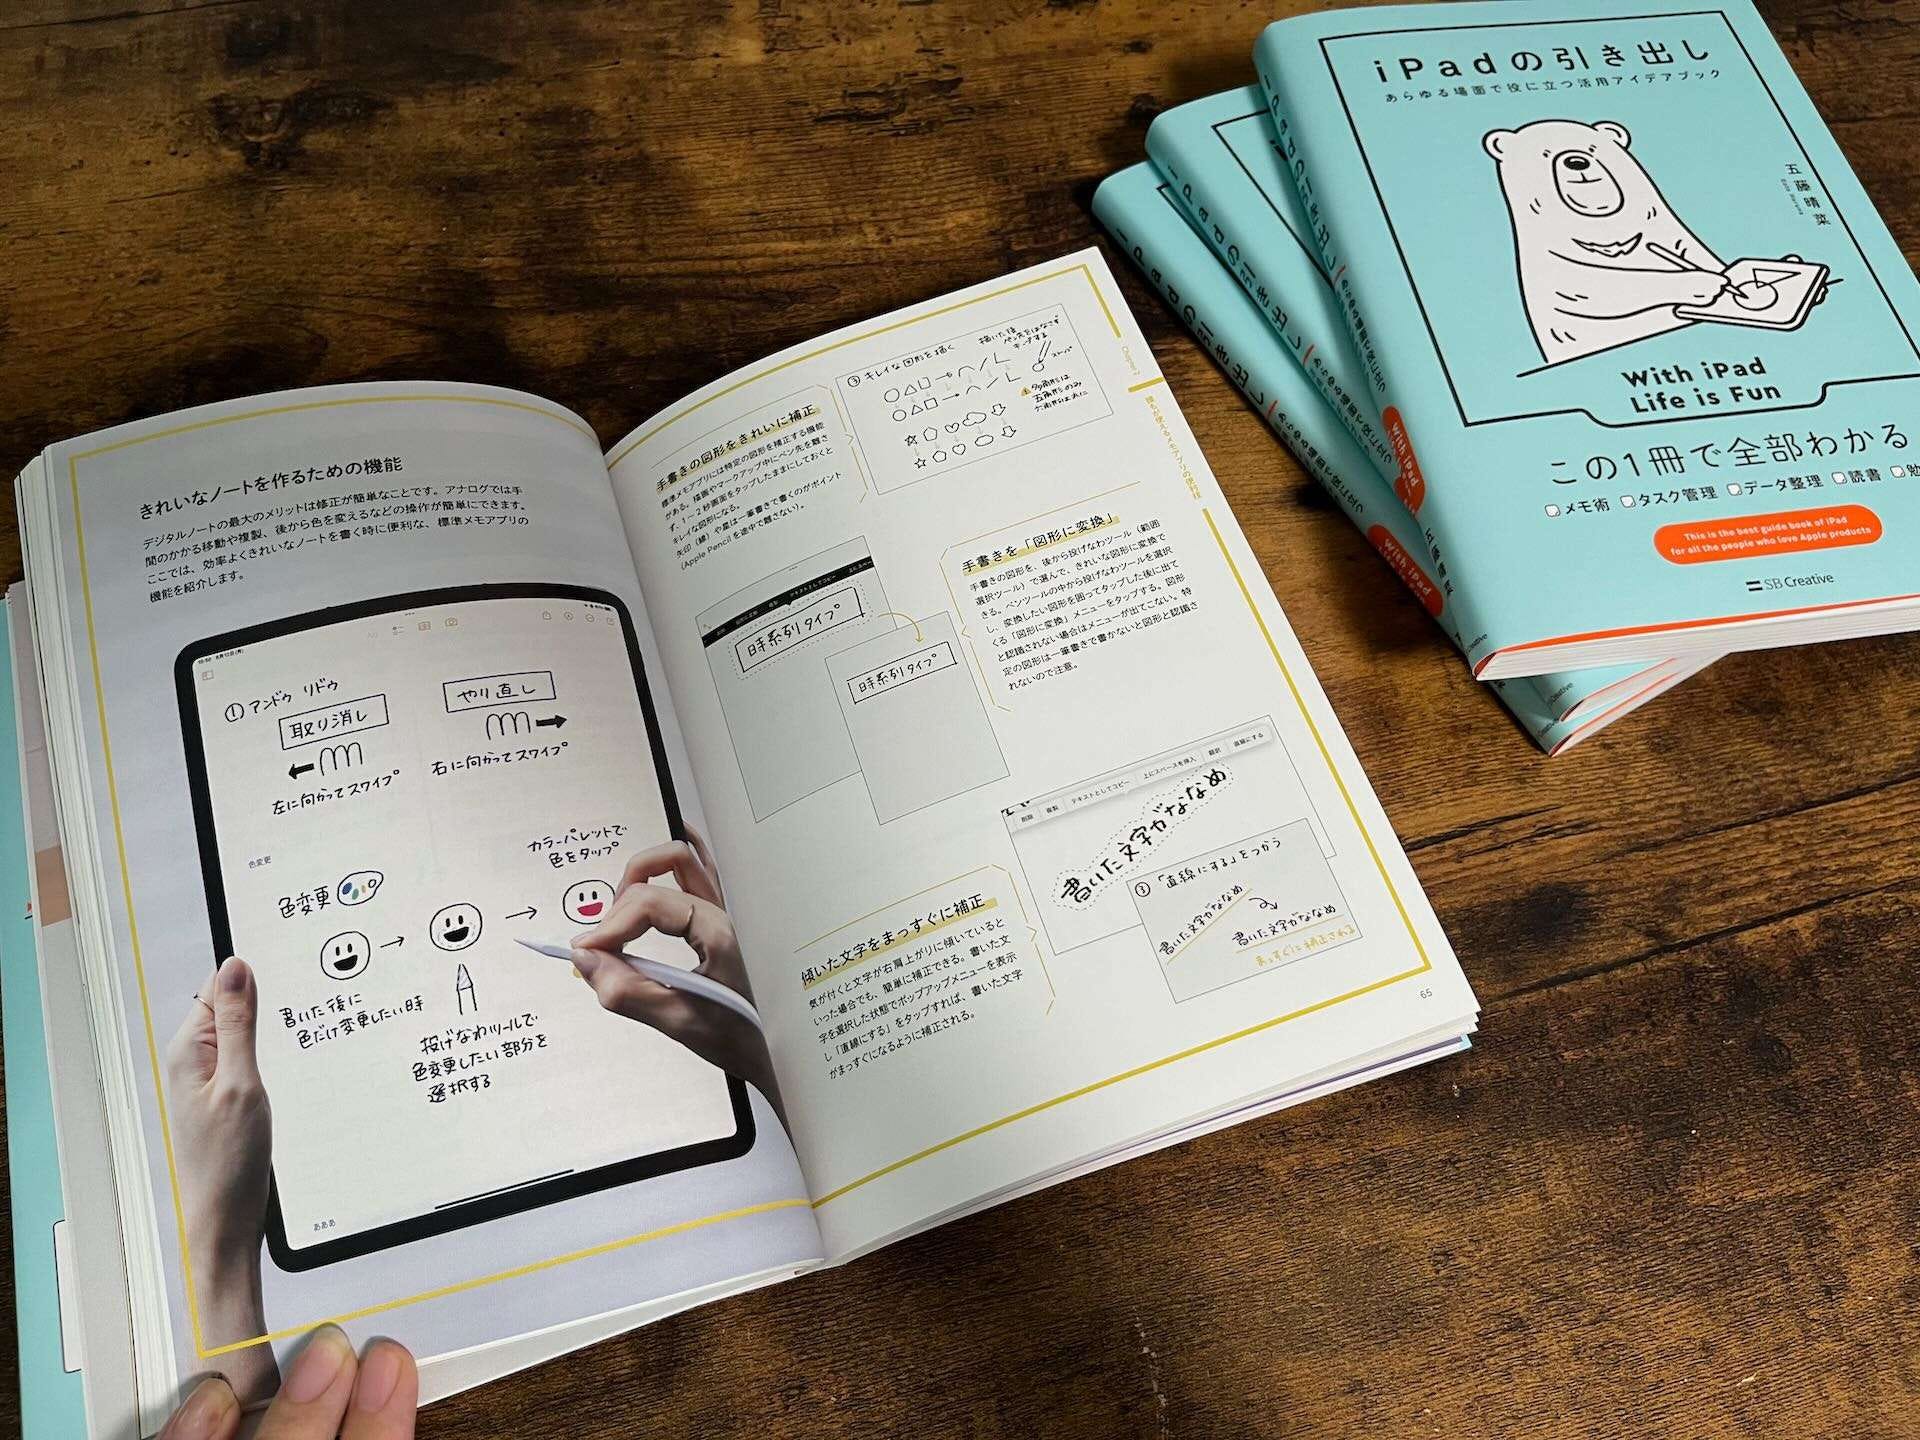 きれいなノートを作るための機能
デジタルノートの最大のメリットは修正が簡単なことです。アナログでは手
間のかかる移動や複製、後から色を変えるなどの操作が簡単にできます。
ここでは、効率よくきれいなノートを書く時に便利な、標準メモアプリの
機能を紹介します。
① アンドゥ リドゥ
取り消し
やり直し
左に向かってスワイプ
右に向かってスワイプ
色変更
色変更
カラーパレットで
色をタップ
書いた後に
色だけ変更したい時
投げなわツールで
色変更したい部分を
選択する
あああ
手書きの図形をきれいに補正
標準メモアプリには特定の図形を補正する機能
がある。描画やマークアップ中にペン先を離さ
ず、1〜2秒画面をタップしたままにしておくと
キレイな図形になる。
矢印（線）や星は一筆書きで書くのがポイント
（Apple Pencilを途中で離さない）。
③ キレイな図形を描く
描いた後
ペン先をはなさず
キープする
多角形は
五角形のみ
手書きを「図形に変換」
手書きの図形を、後から投げなわツール（範囲
選択ツール）で選んで、きれいな図形に変換で
きる。ペンツールの中から投げなわツールを選択
し、変換したい図形を囲ってタップした後に出て
くる「図形に変換」メニューをタップする。図形
と認識されない場合はメニューが出てこない。特
定の図形は一筆書きで書かないと図形と認識さ
れないので注意。
時系列タイプ
時系列タイプ
傾いた文字をまっすぐに補正
気が付くと文字が右肩上がりに傾いていると
いった場合でも、簡単に補正できる。書いた文
字を選択した状態でポップアップメニューを表示
し「直線にする」をタップすれば、書いた文字
がまっすぐになるように補正される。
削除 複製 テキストとしてコピー 上にスペースを挿入 翻訳 直線にする
書いた文字がななめ
③ 「直線にする」をつかう
書いた文字がななめ
書いた文字がななめ
まっすぐに補正される
Chapter2
誰もが使えるメモアプリの便利技
65
iPadの引き出し
あらゆる場面で役に立つ活用アイデアブック
五藤晴菜
With iPad
Life is Fun
この1冊で全部わかる
メモ術 タスク管理 データ整理 読書 勉
This is the best guide book of iPad
for all the people who love Apple products
SB Creative
iPadの引き出し
iPadの引き出し
iPadの引き出し
With iPad
With iPad
五藤晴菜